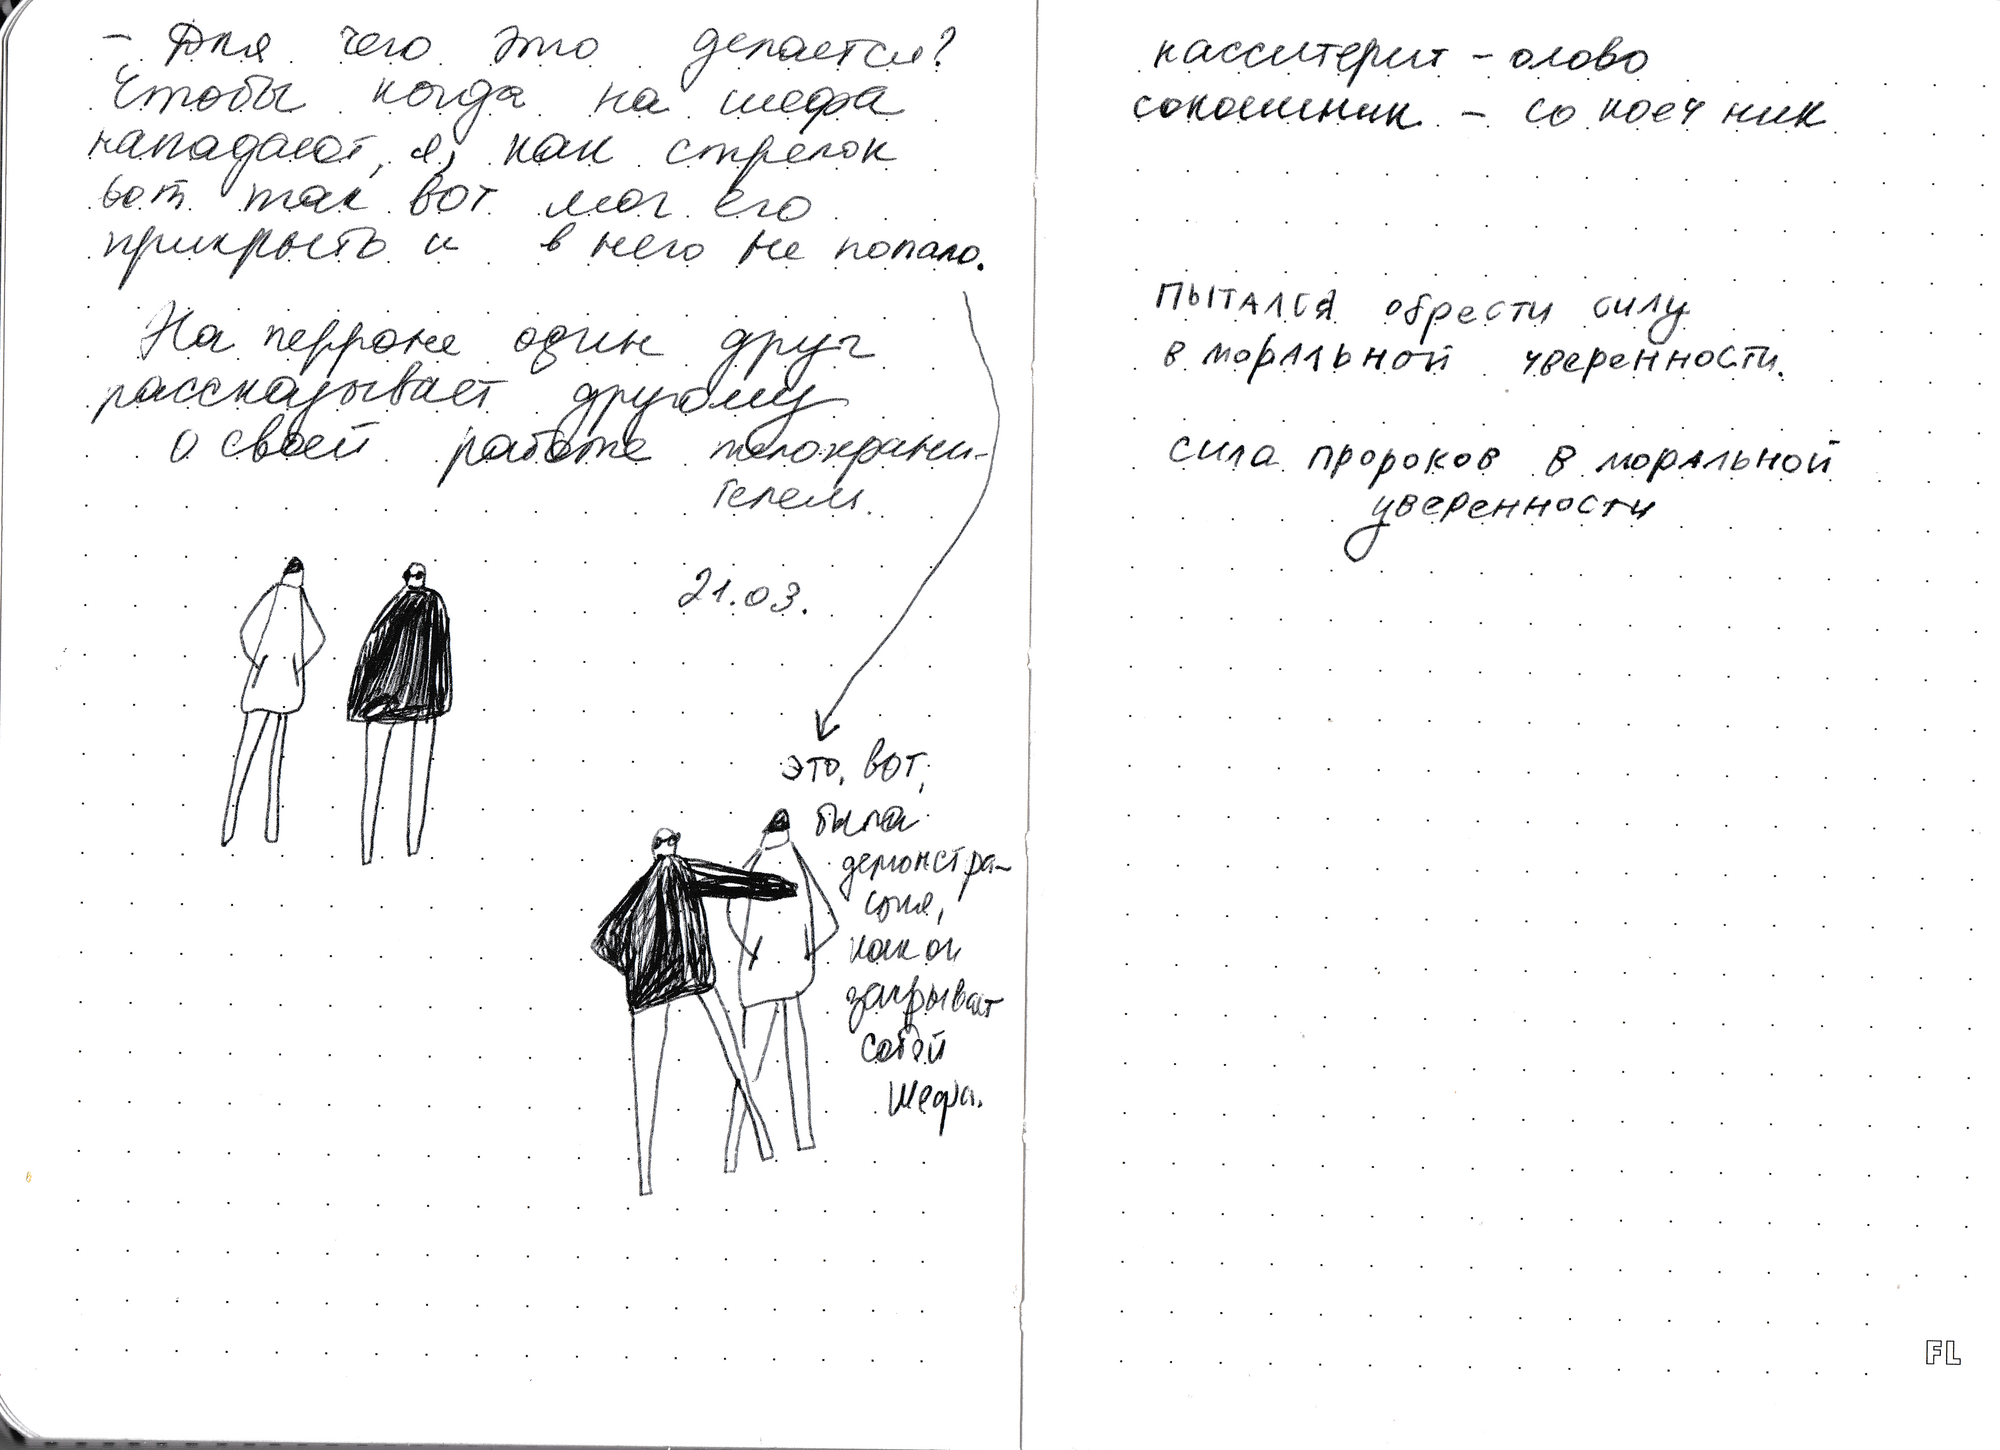 – Для чего это делается?
Чтобы когда на шефа
нападают, я, как стрелок
вот так вот мог его
прикрыть и в него не попало.
На перроне один друг
рассказывает другому
о своей работе телохрани-
телем.
21.03.
это, вот,
была
демонстра-
ция,
как он
закрывает
собой
шефа.
касситерит – олово
сокошник – со коеч ник
пытался обрести силу
в моральной уверенности.
сила пророков в моральной
уверенности
FL